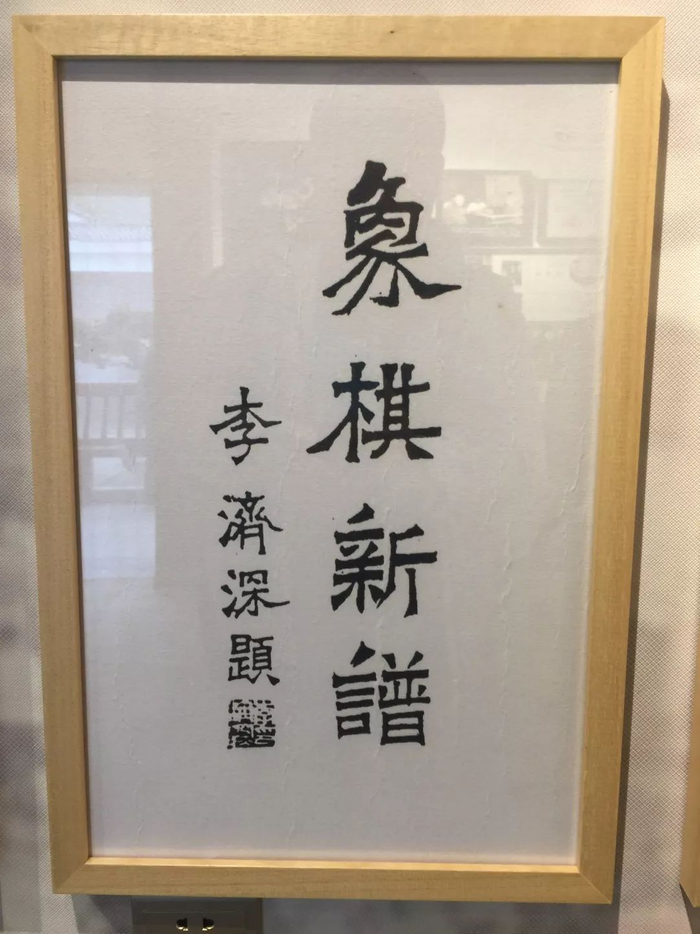 象棋新譜
李濟深題